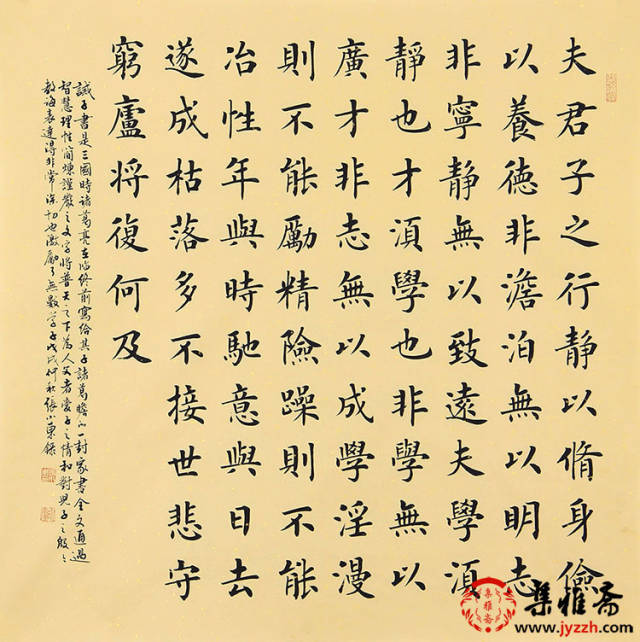 夫君子之行靜以脩身儉
以養德非澹泊無以明志
非寧靜無以致遠夫學湏
靜也才湏學也非學無以
廣才非志無以成學淫漫
則不能勵精險躁則不能
冶性年與時馳意與日去
遂成枯落多不接世悲守
窮廬將復何及
誡子書是三國時諸葛亮在临終前寫給其子諸葛瞻的一封家書全文通過
智慧理性简煉謹嚴之文字將普天之下為人父者愛子之情和對兒子之殷殷
教诲表達得非常深切也激勵了無數学子戊戌仲秋張小東録
集雅斋
www.jyzzh.com